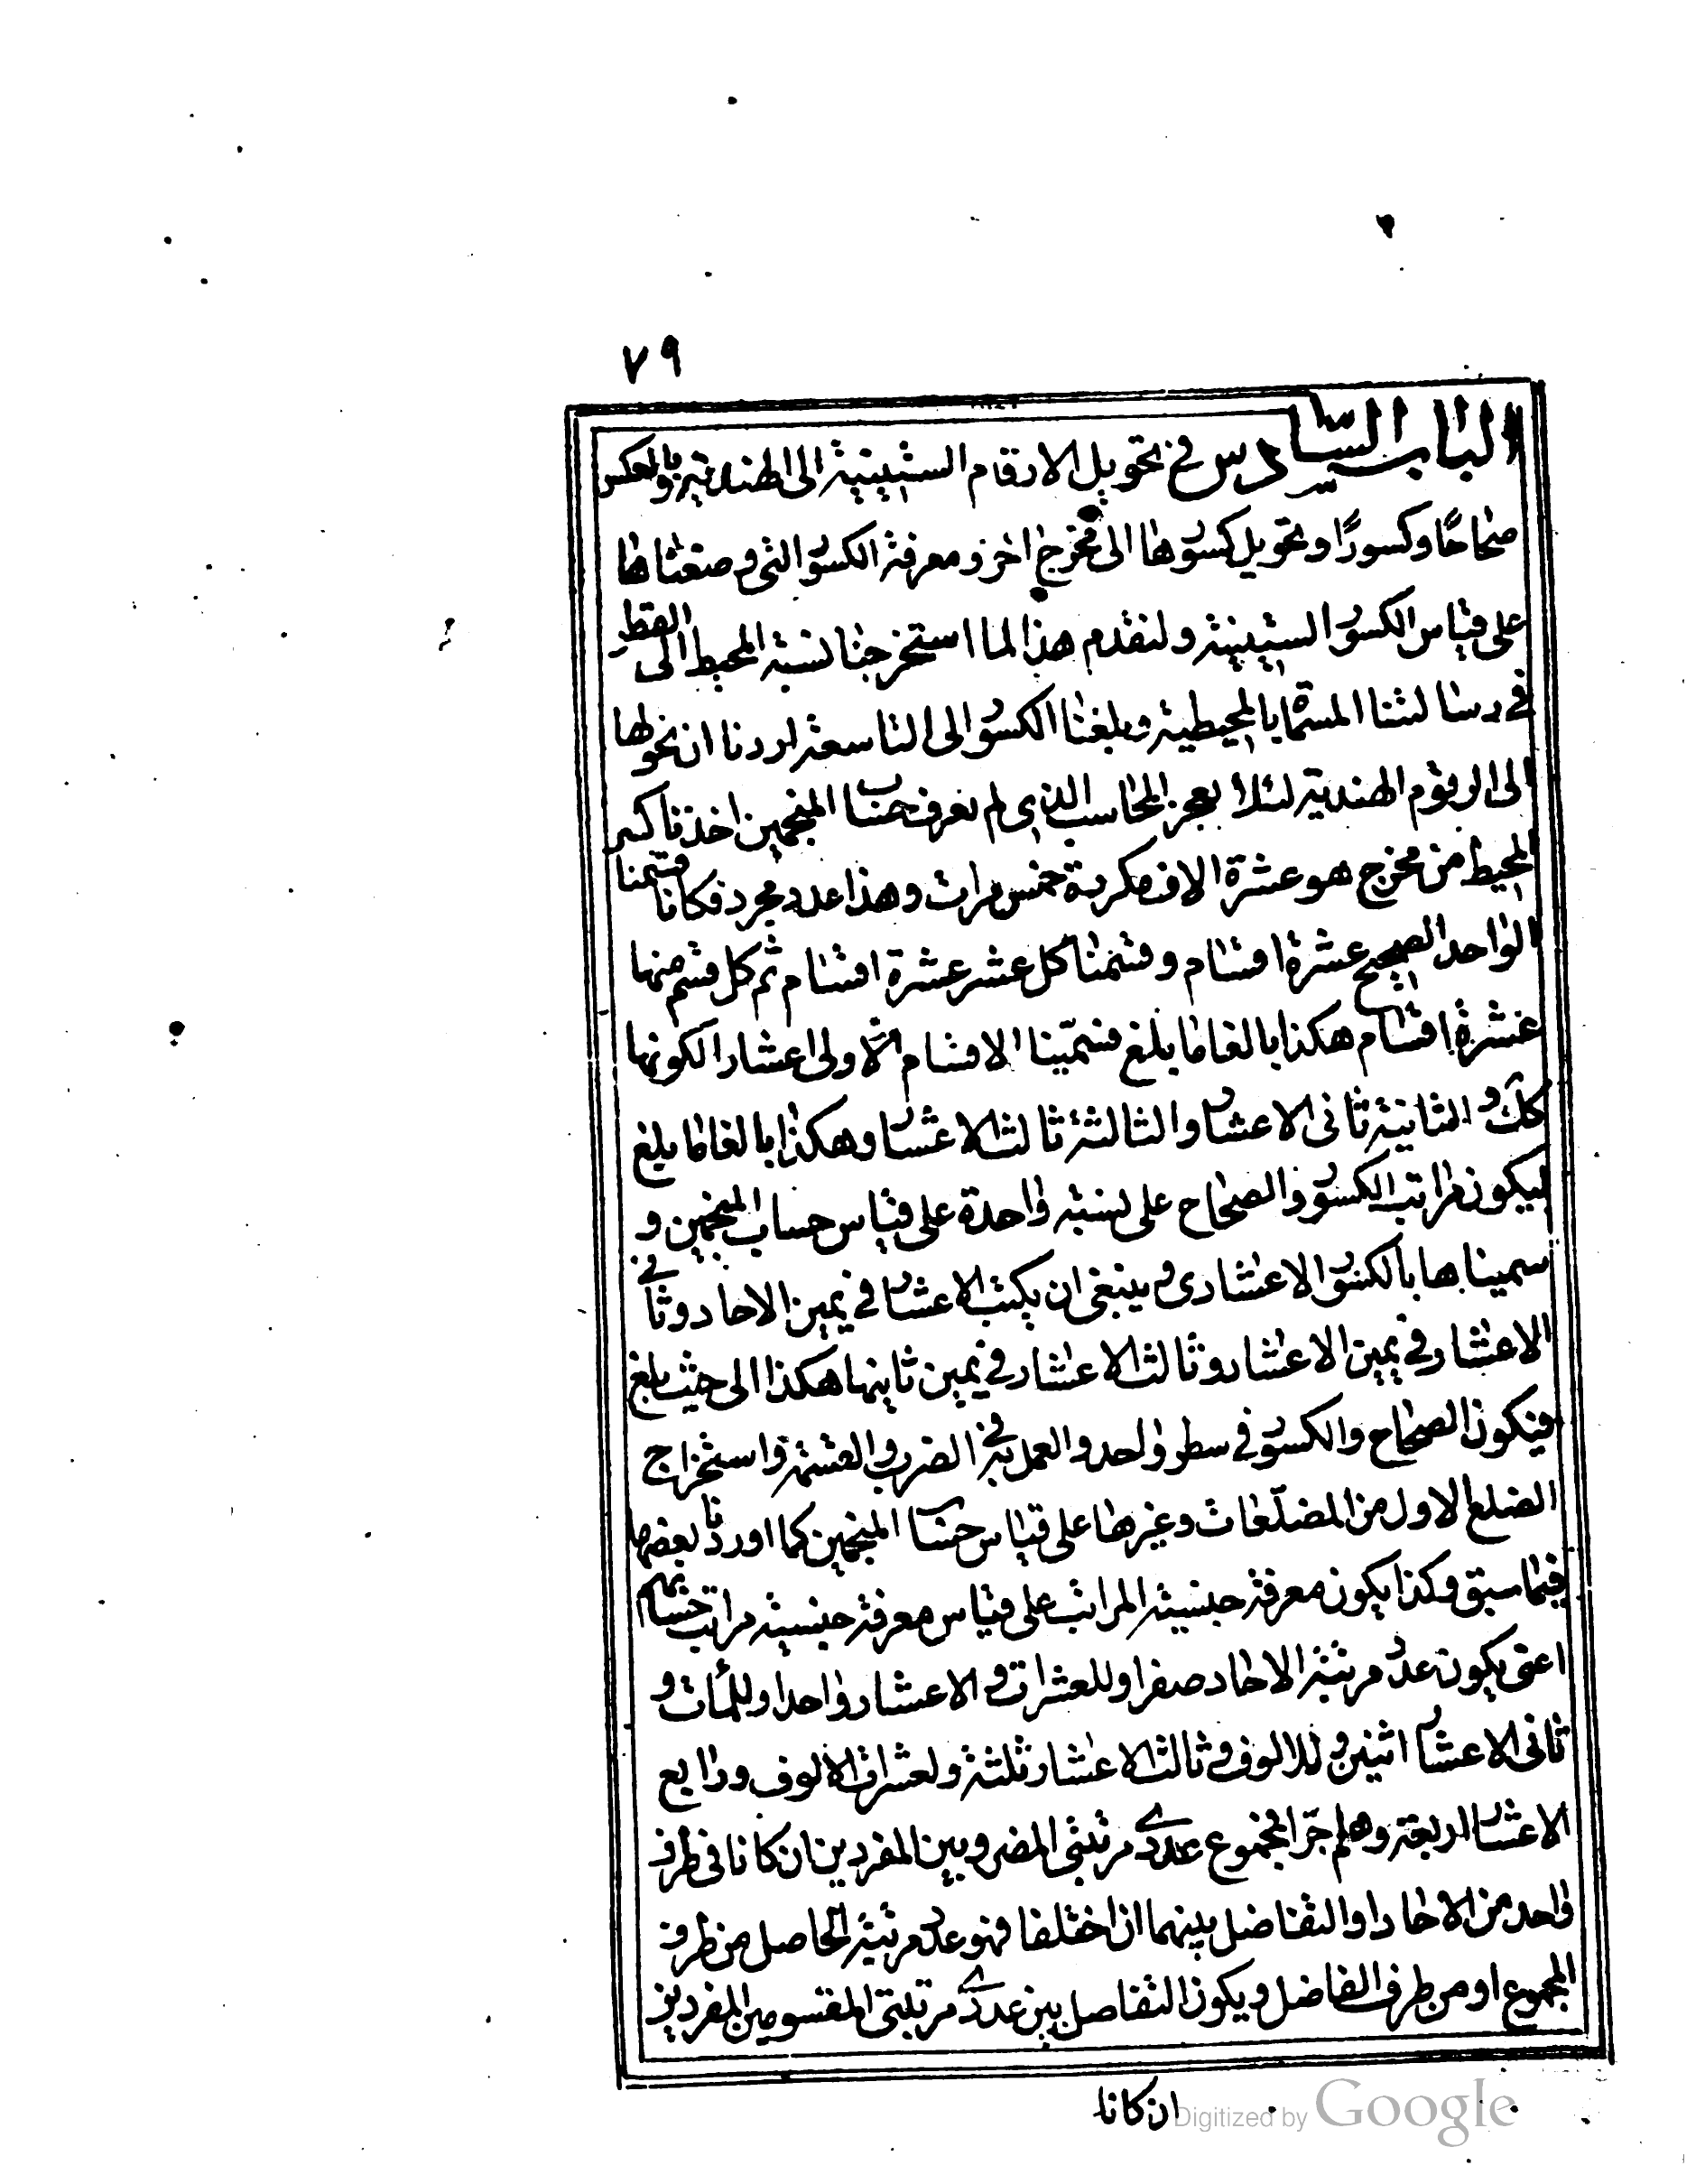 ٧٩
الباب السادس في تحويل الارقام الستينية الى الهندية وبالعكس
صحاحا وكسورا وتحويل كسورها الى مخرج اخر ومعرفة الكسور التى وضعناها
على قياس الكسور الستينية ولنقدم هذا لما استخرجنا نسبة المحيط الى القطر
في رسالتنا المسماة بالمحيطية وبلغنا الكسور الى التاسعة اردنا ان نحولها
الى الرقوم الهندية لئلا يعجز الحاسب الذى لم يعرف حساب المنجمين اخذنا كسر
المحيط من مخرج هو عشرة الاف مكررة خمس مرات وهذا عدد مجرد فكانا قسمنا
الواحد الصحيح عشرة اقسام وقسمنا كل عشر عشرة اقسام ثم كل قسم منها
عشرة اقسام هكذا بالغا ما بلغ فسمينا الاقسام الاولى اعشارا لكونها
كك و الثانية ثانى الاعشار والثالثة ثالث الاعشار وهكذا بالغا ما بلغ
ليكون مراتب الكسور والصحاح على نسبة واحدة على قياس حساب المنجمين و
سميناها بالكسور الاعشارى وينبغى ان يكتب الاعشار في يمين الاحاد وثانى
الاعشار في يمين الاعشار وثالث الاعشار في يمين ثانيها هكذا الى حيث بلغ
فيكون الصحاح والكسور في سطر واحد والعمل به في الضرب والقسمة واستخراج
الضلع الاول من المضلعات وغيرها على قياس حساب المنجمين كما اوردنا بعضها
فيما سبق وكذا يكون معرفة جنسية المراتب على قياس معرفة جنسية مراتب حسابهم
اعنى يكون عدد مرتبة الاحاد صفرا وللعشرات و الاعشار واحدا وللمأت و
ثانى الاعشار اثنين و للالوف و ثالث الاعشار ثلثة ولعشرات الالوف ورابع
الاعشار اربعة وهلم جرا فمجموع عددى مرتبتى المضروبين المفردين ان كانا فى طرف
واحد من الاحاد او التفاضل بينهما ان اختلفا فهو عدد مرتبة الحاصل من طرف
المجموع او من طرف الفاضل ويكون التفاضل بين عددى مرتبتى المقسومين المفردين
ان كانا
Digitized by Google